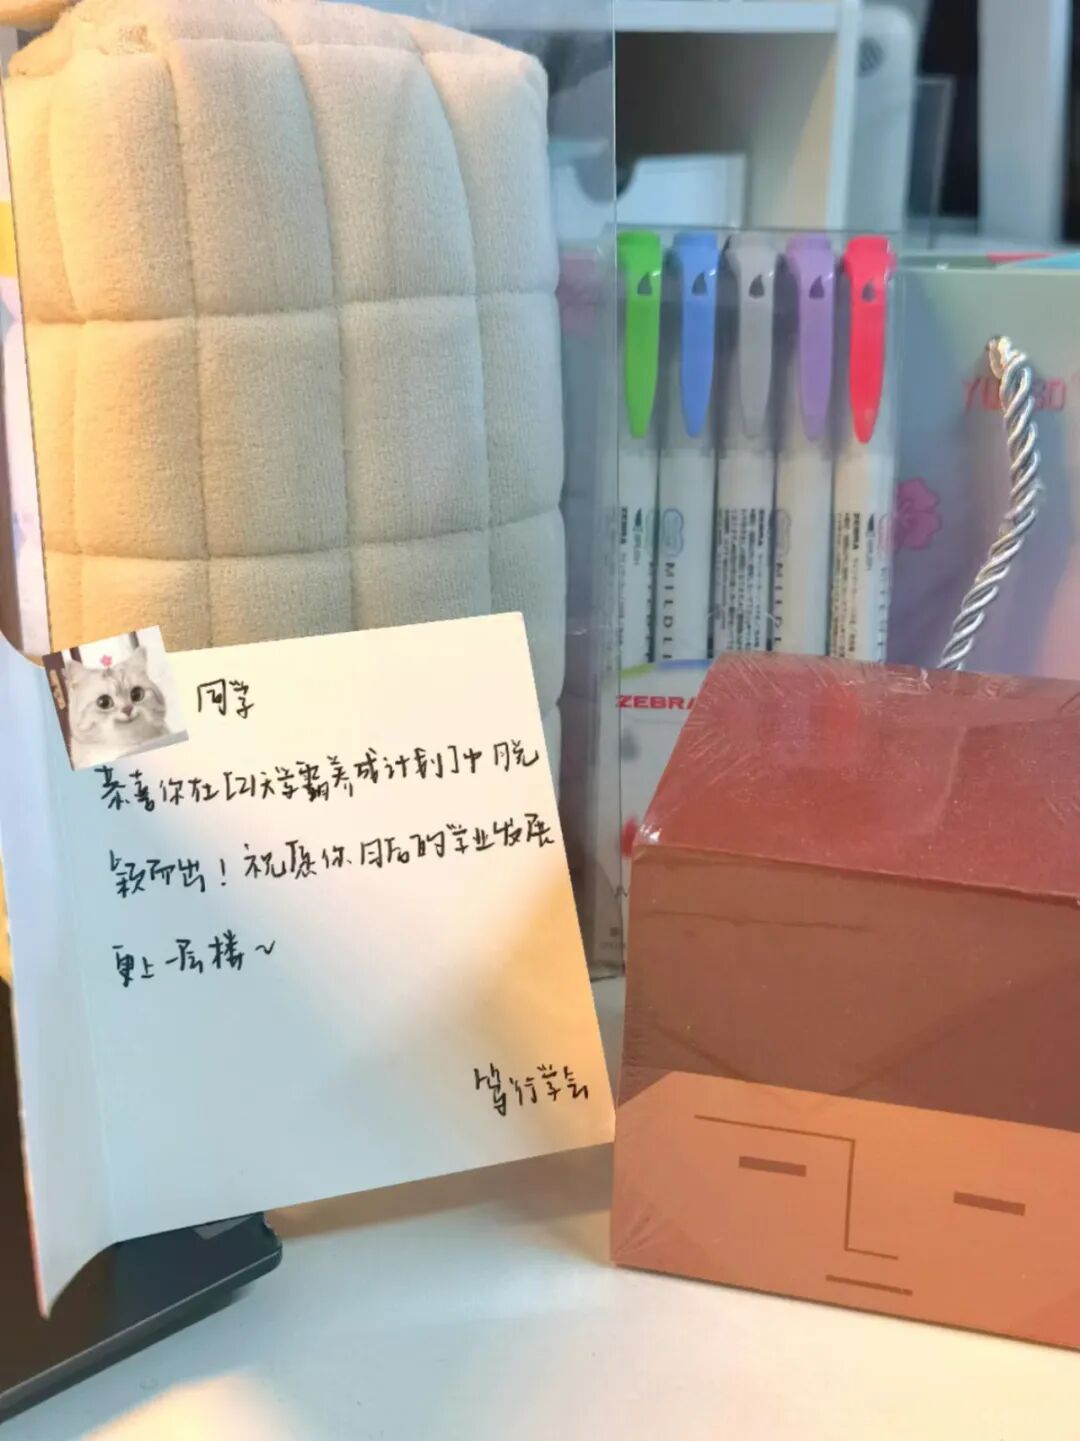 同学
恭喜你在[21天学霸养成计划]中脱
颖而出！祝愿你日后的学业发展
更上一层楼~
笃行学会
ZEBRA
ZEBRA
ZEBRA
MILDL
MILDL
ZEBRA